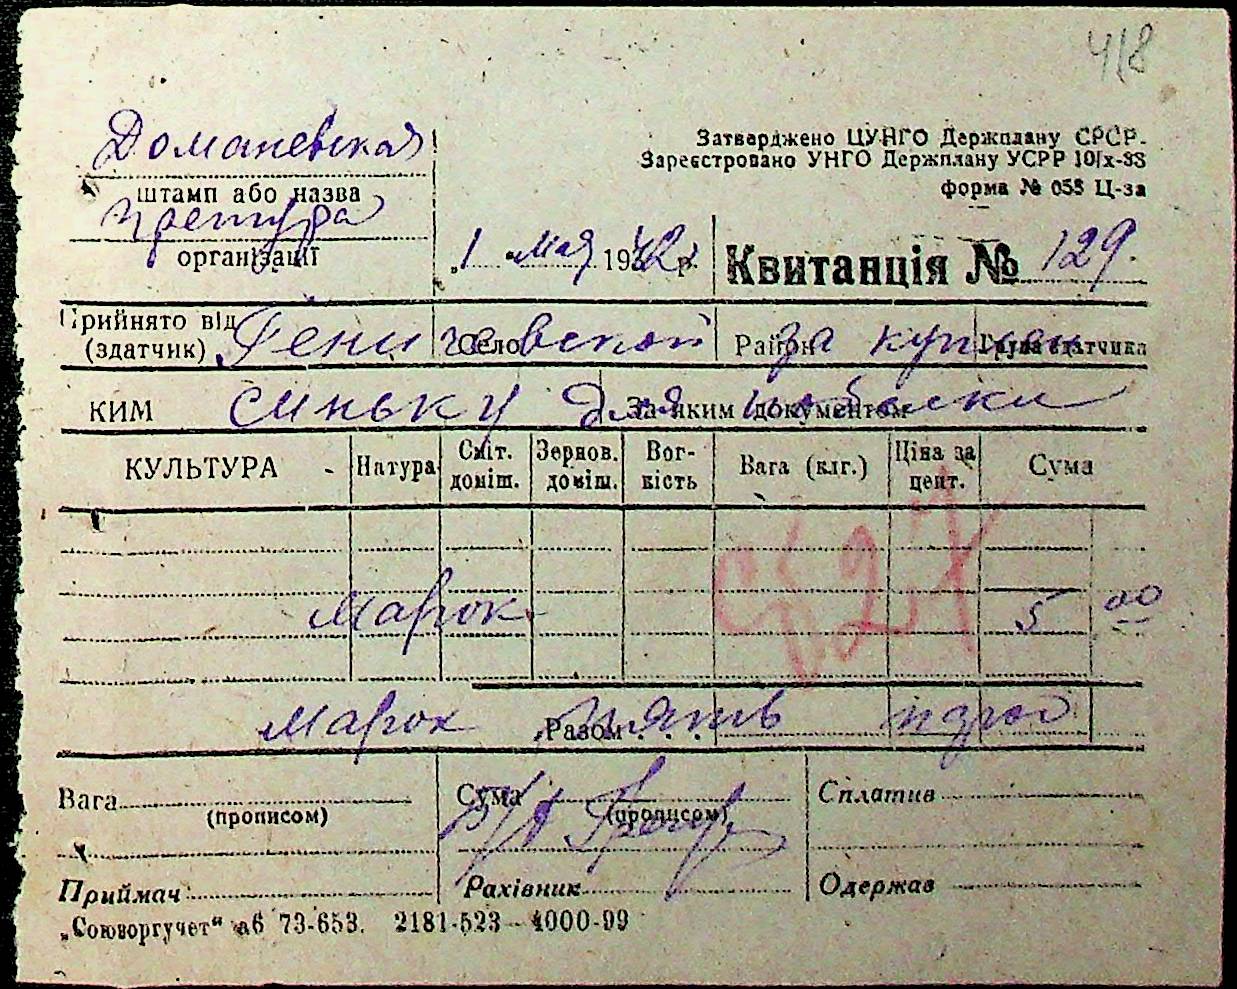 418
Доманевская
Затверджено ЦУНГО Держплану СРСР.
Зареєстровано УНГО Держплану УСРР 10/х-33
форма № 053 Ц-за
штамп або назва
претура
організації
„1 " мая 1942 р.
Квитанція № 129.
Прийнято від (здатчик) Село Район Група здатчика
Геничевской за купчен
КИМ За яким документом
синьку для побелки
КУЛЬТУРА Натура Сміт. доміш. Зернов. доміш. Вогкість Вага (клг.) Ціна за цент. Сума
марок 5 00
Марок Разом пять
Вага Сума Сплатив
(прописом) (прописом)
Приймач Рахівник Одержав
„Союзоргучет" аб 73-653. 2181-523—4000-99